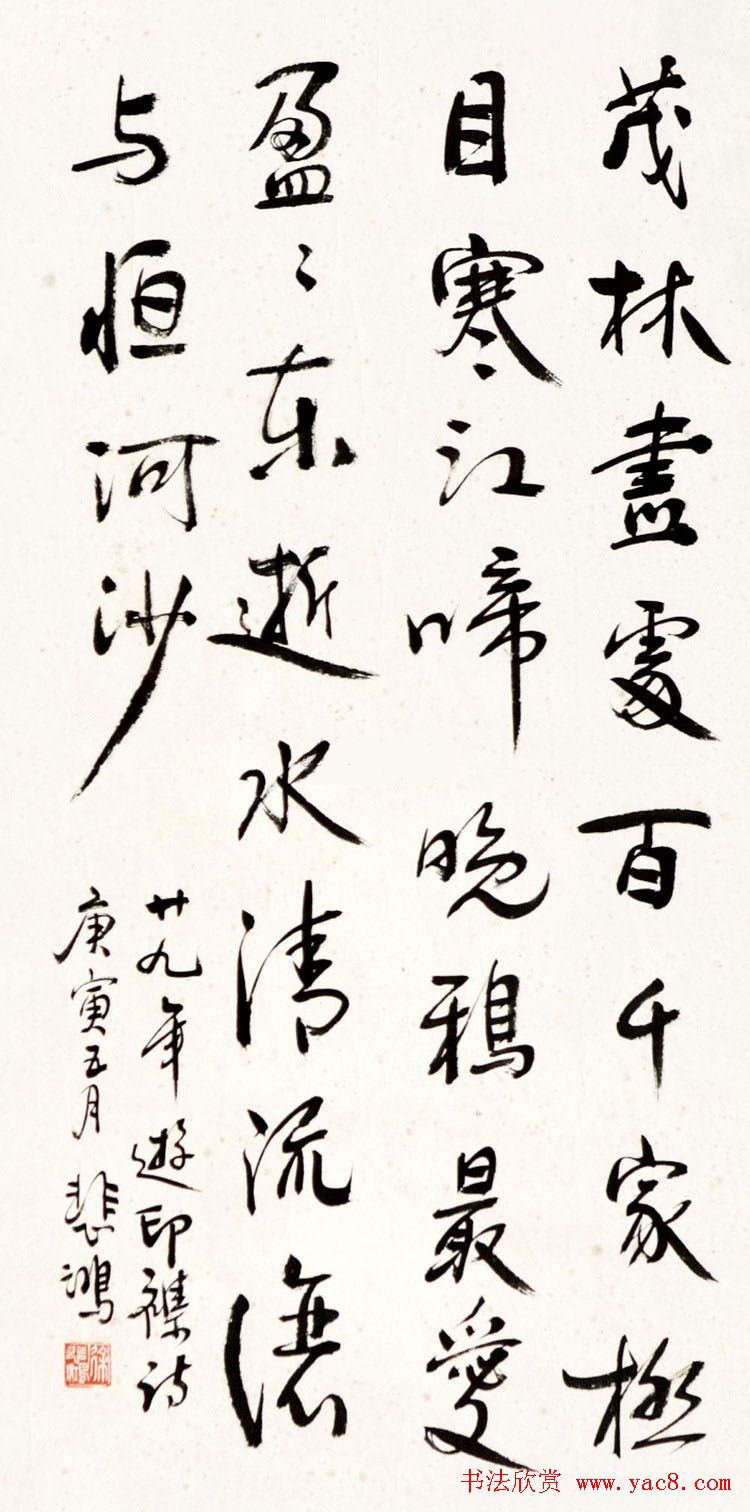 茂林盡處百千家極
目寒江啼晚鴉最愛
盈〻东逝水清流
与恒河沙
廿九年遊印襍诗
庚寅五月 悲鴻
书法欣赏 www.yac8.com